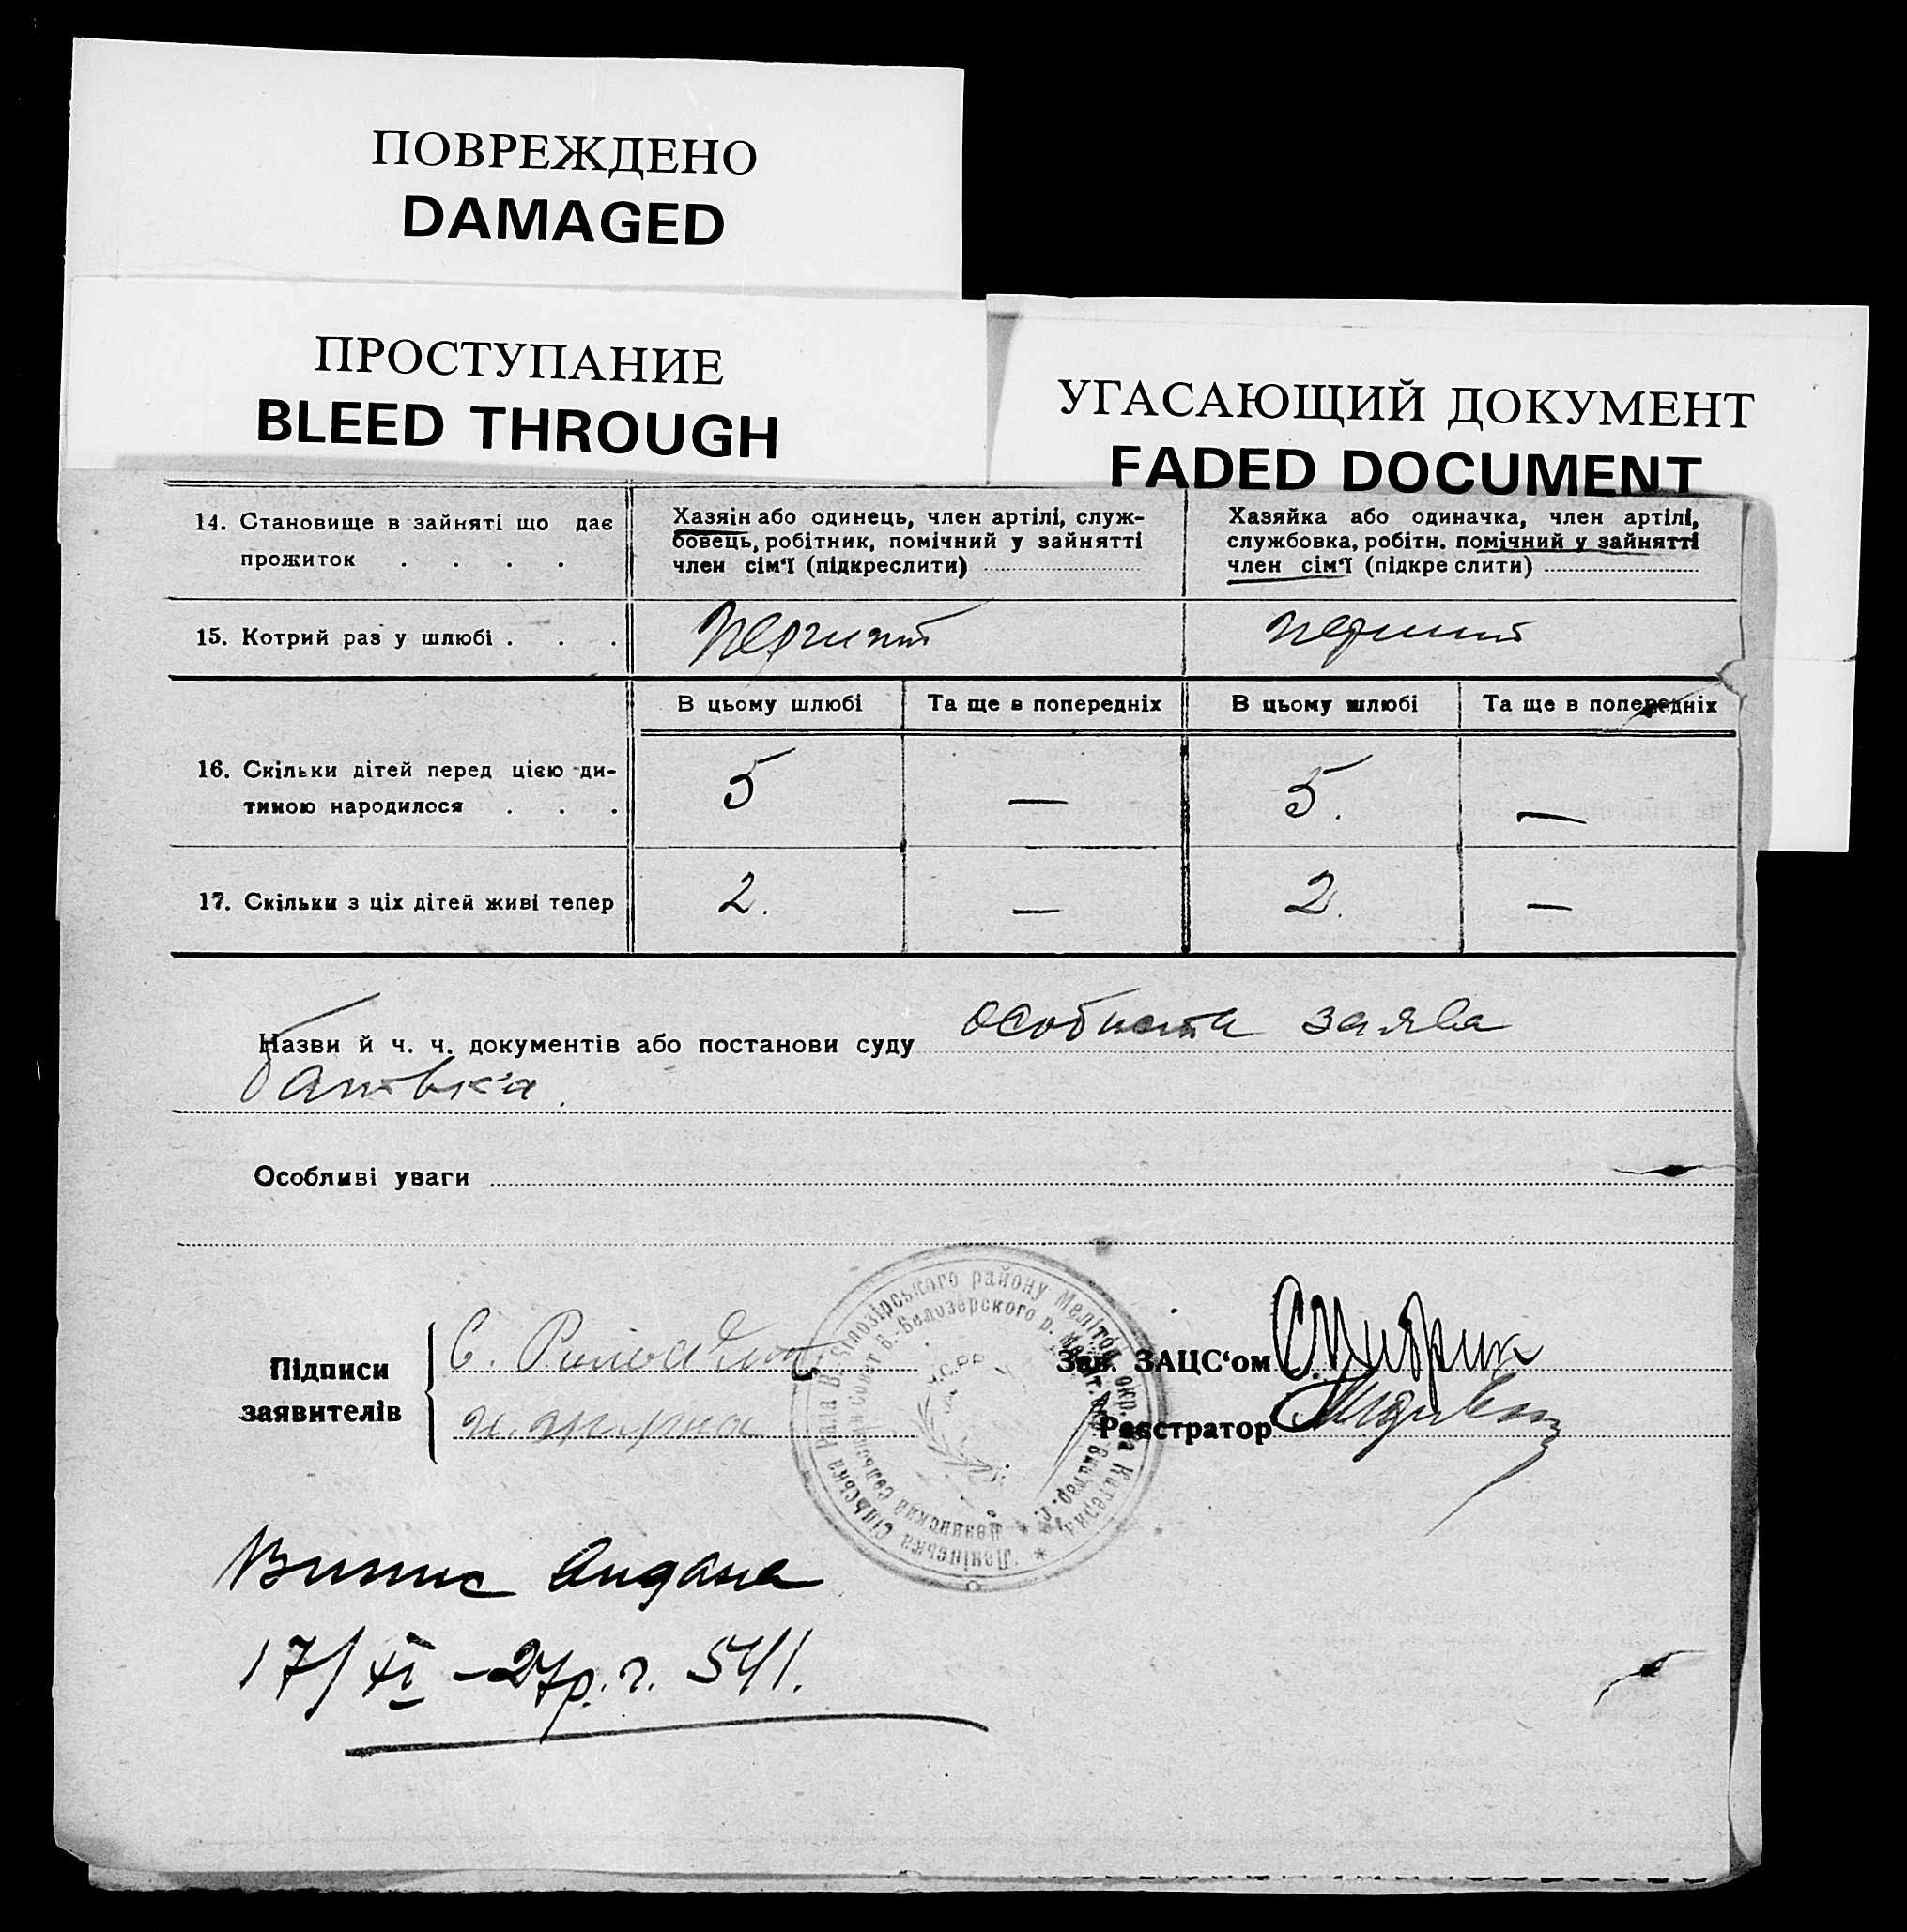 ПОВРЕЖДЕНО
DAMAGED
ПРОСТУПАНИЕ
BLEED THROUGH
УГАСАЮЩИЙ ДОКУМЕНТ
FADED DOCUMENT
14. Становище в зайняті що дає
прожиток . . . .
Хазяін або одинець, член артілі, служ-
бовець, робітник, помічний у зайнятті
член сім'ї (підкреслити)
Хазяйка або одиначка, член артілі,
службовка, робітн. помічний у зайнятті
член сім'ї (підкреслити)
15. Котрий раз у шлюбі . . .
первий
В цьому шлюбі
Та ще в попередніх
В цьому шлюбі
Та ще в попередніх
16. Скільки дітей перед цією ди-
тиною народилося . . .
5
—
5.
—
17. Скільки з ціх дітей живі тепер
2.
—
2.
—
Назви й ч. ч. документів або постанови суду особиста заява
батьк'а.
Особливі уваги
Підписи
заявителів
С.
Зав. ЗАЦС'ом
Реєстратор
Ленінська Сільська Рада В. Білозірського району Меліто окр. на Катерин.
Ленинский Сельский Совет Б.-Белозерского р. Мелит. окр. Екатер. г.
У.С.Р.Р.
Випис видана
17/XI-27р. г. 541.